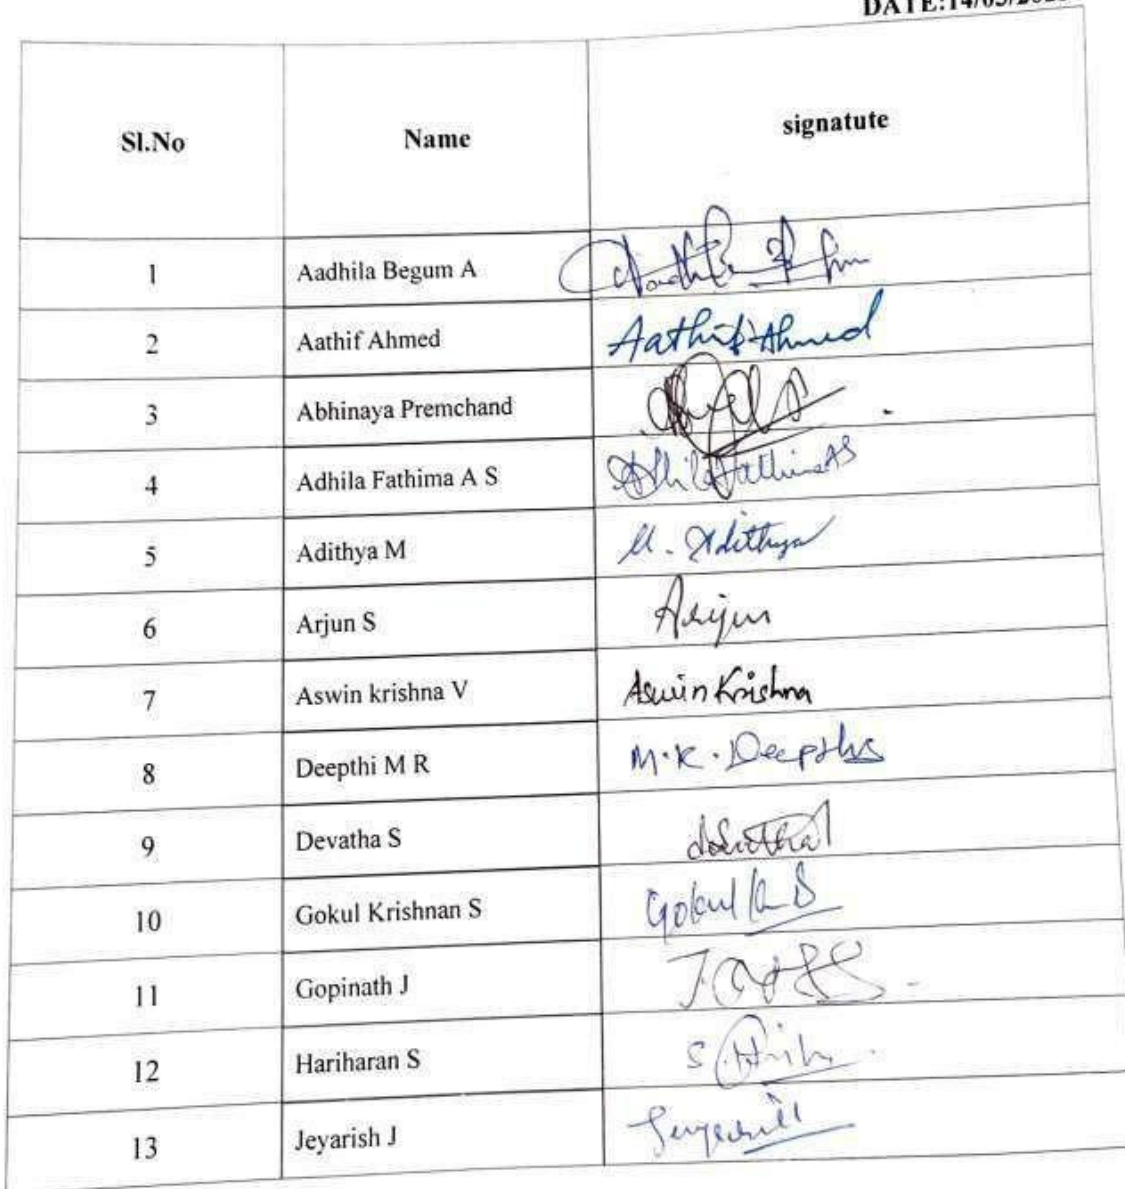 DATE:14/03/202
Sl.No Name signatute
1 Aadhila Begum A
2 Aathif Ahmed Aathif Ahmed
3 Abhinaya Premchand
4 Adhila Fathima A S Adhila Fathima AS
5 Adithya M M. Adithya
6 Arjun S Arjun
7 Aswin krishna V Aswin Krishna
8 Deepthi M R M.R. Deepthi
9 Devatha S
10 Gokul Krishnan S Gokul K S
11 Gopinath J
12 Hariharan S
13 Jeyarish J